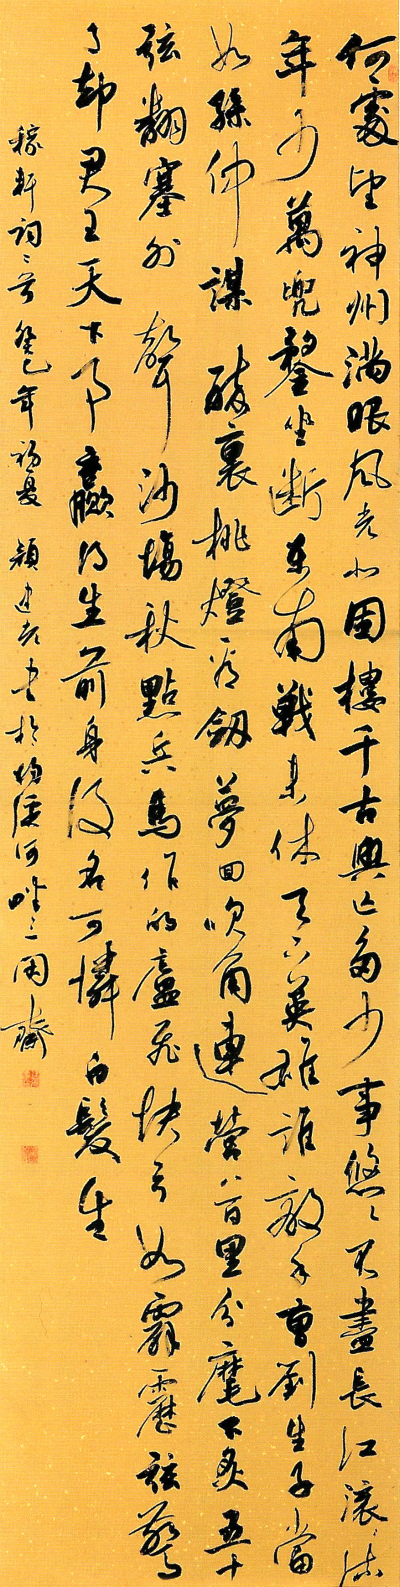 何處望神州滿眼風光北固樓千古興亡多少事悠悠不盡長江滾滾流
年少萬兜鍪坐斷東南戰未休天下英雄誰敵手曹劉生子當
如孫仲謀醉裏挑燈看劍夢回吹角連營八百里分麾下炙五十
弦翻塞外聲沙場秋點兵馬作的盧飛快弓如霹靂弦驚
了却君王天下事贏得生前身後名可憐白髮生
稼軒詞二首癸巳年初夏顏建書於河畔三困齋